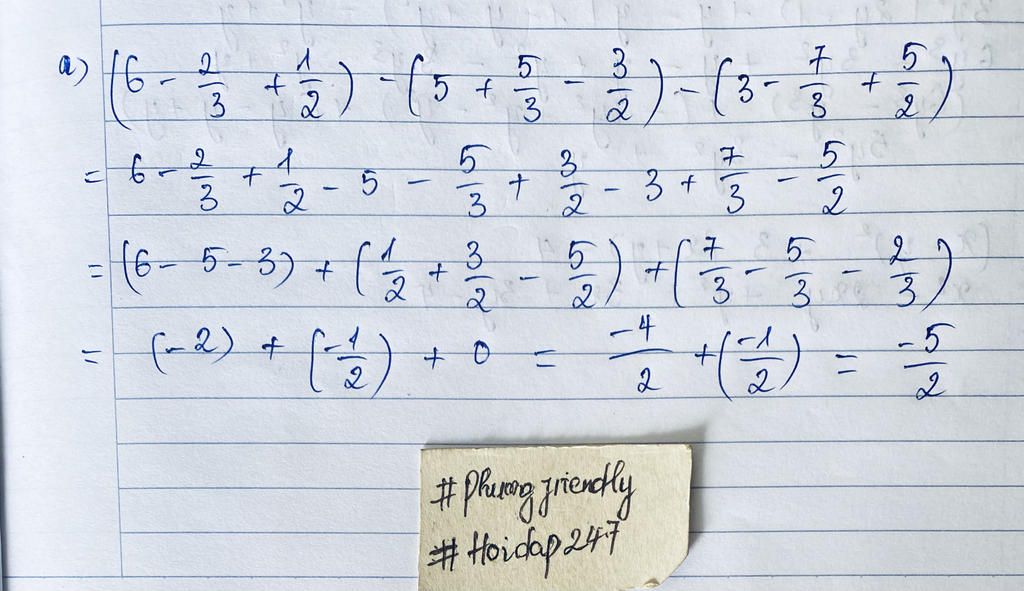 a) (6 - 2/3 + 1/2) - (5 + 5/3 - 3/2) - (3 - 7/3 + 5/2)
= 6 - 2/3 + 1/2 - 5 - 5/3 + 3/2 - 3 + 7/3 - 5/2
= (6 - 5 - 3) + (1/2 + 3/2 - 5/2) + (7/3 - 5/3 - 2/3)
= (-2) + (-1/2) + 0 = -4/2 + (-1/2) = -5/2
# Phuong friendly
# Hoidap247